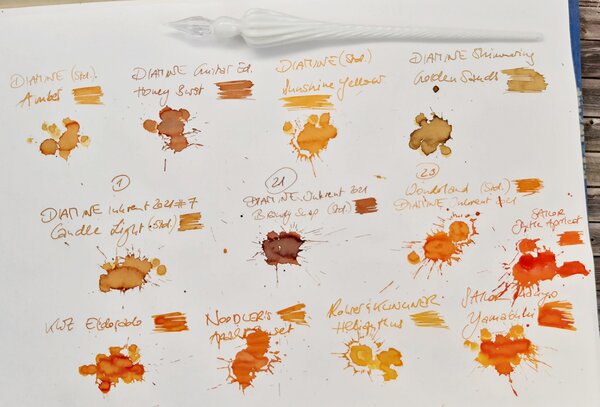 DIAMINE (Std.)
Amber
DIAMINE Guitar Ed.
Honey Burst
DIAMINE (Std.)
Sunshine Yellow
DIAMINE Shimmering
Golden Sands
1
DIAMINE Inkvent 2021 #7
Candle Light (Std.)
21
DIAMINE Inkvent 2021
Brandy Snap (Std.)
23
Wonderland (Std.)
DIAMINE Inkvent 2021
SAILOR
Apricot
KWZ Eldorado
NOODLER'S
Apache Sunset
ROHRER & KLINGNER
Helianthus
SAILOR
Yamabuki